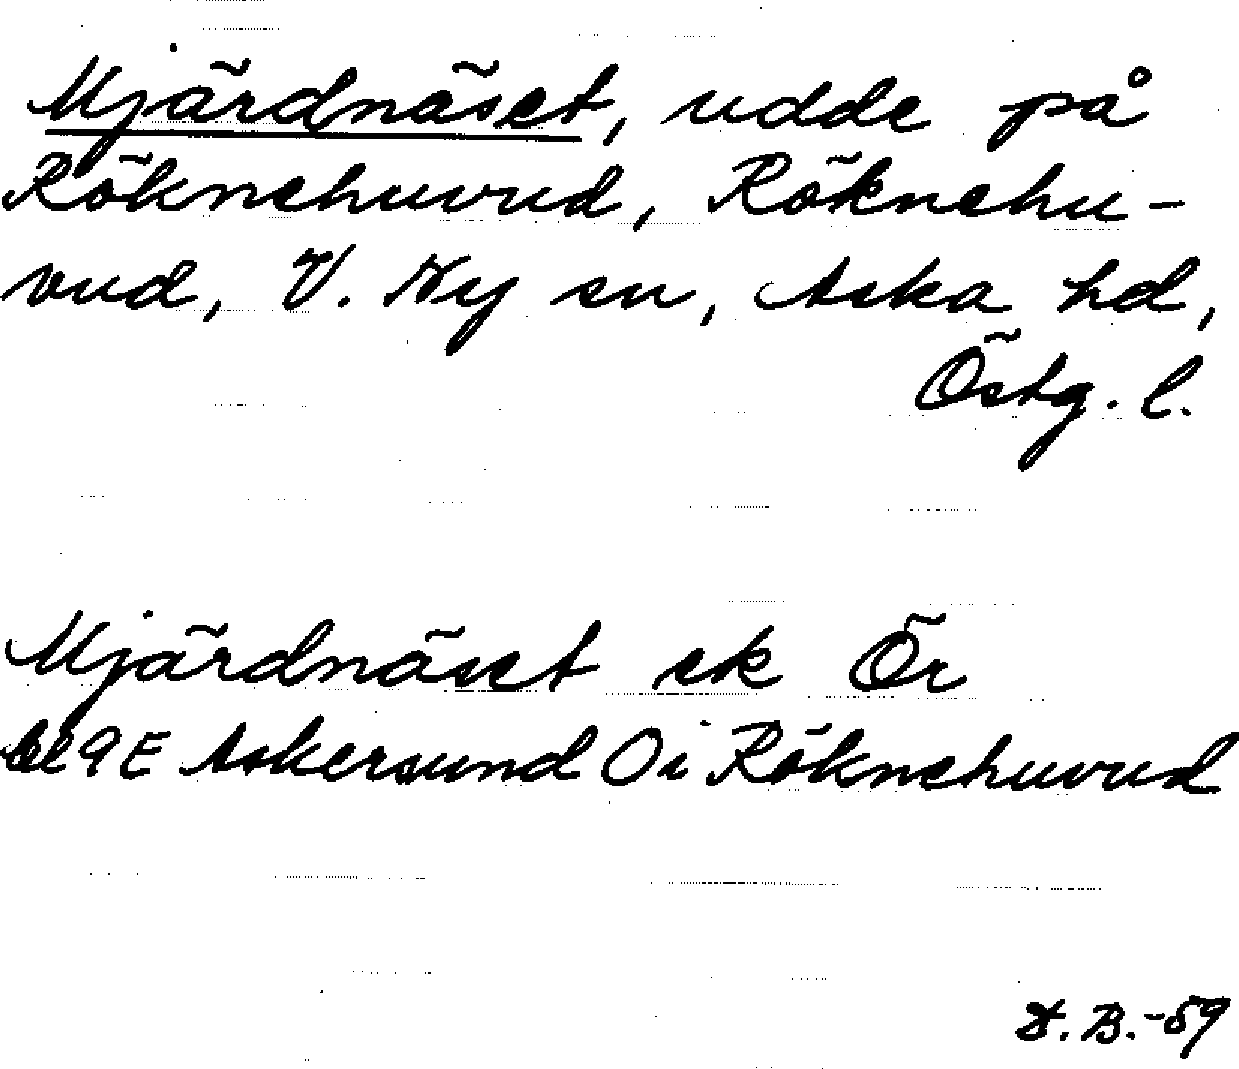 Mjärdnäset, udde på
Röknehuvud, Röknehu-
vud, V. Ny sn, Aska hd,
Östg. l.
Mjärdnäset ek Ör
bl 9E Askersund Oi Röknehuvud
B.-59